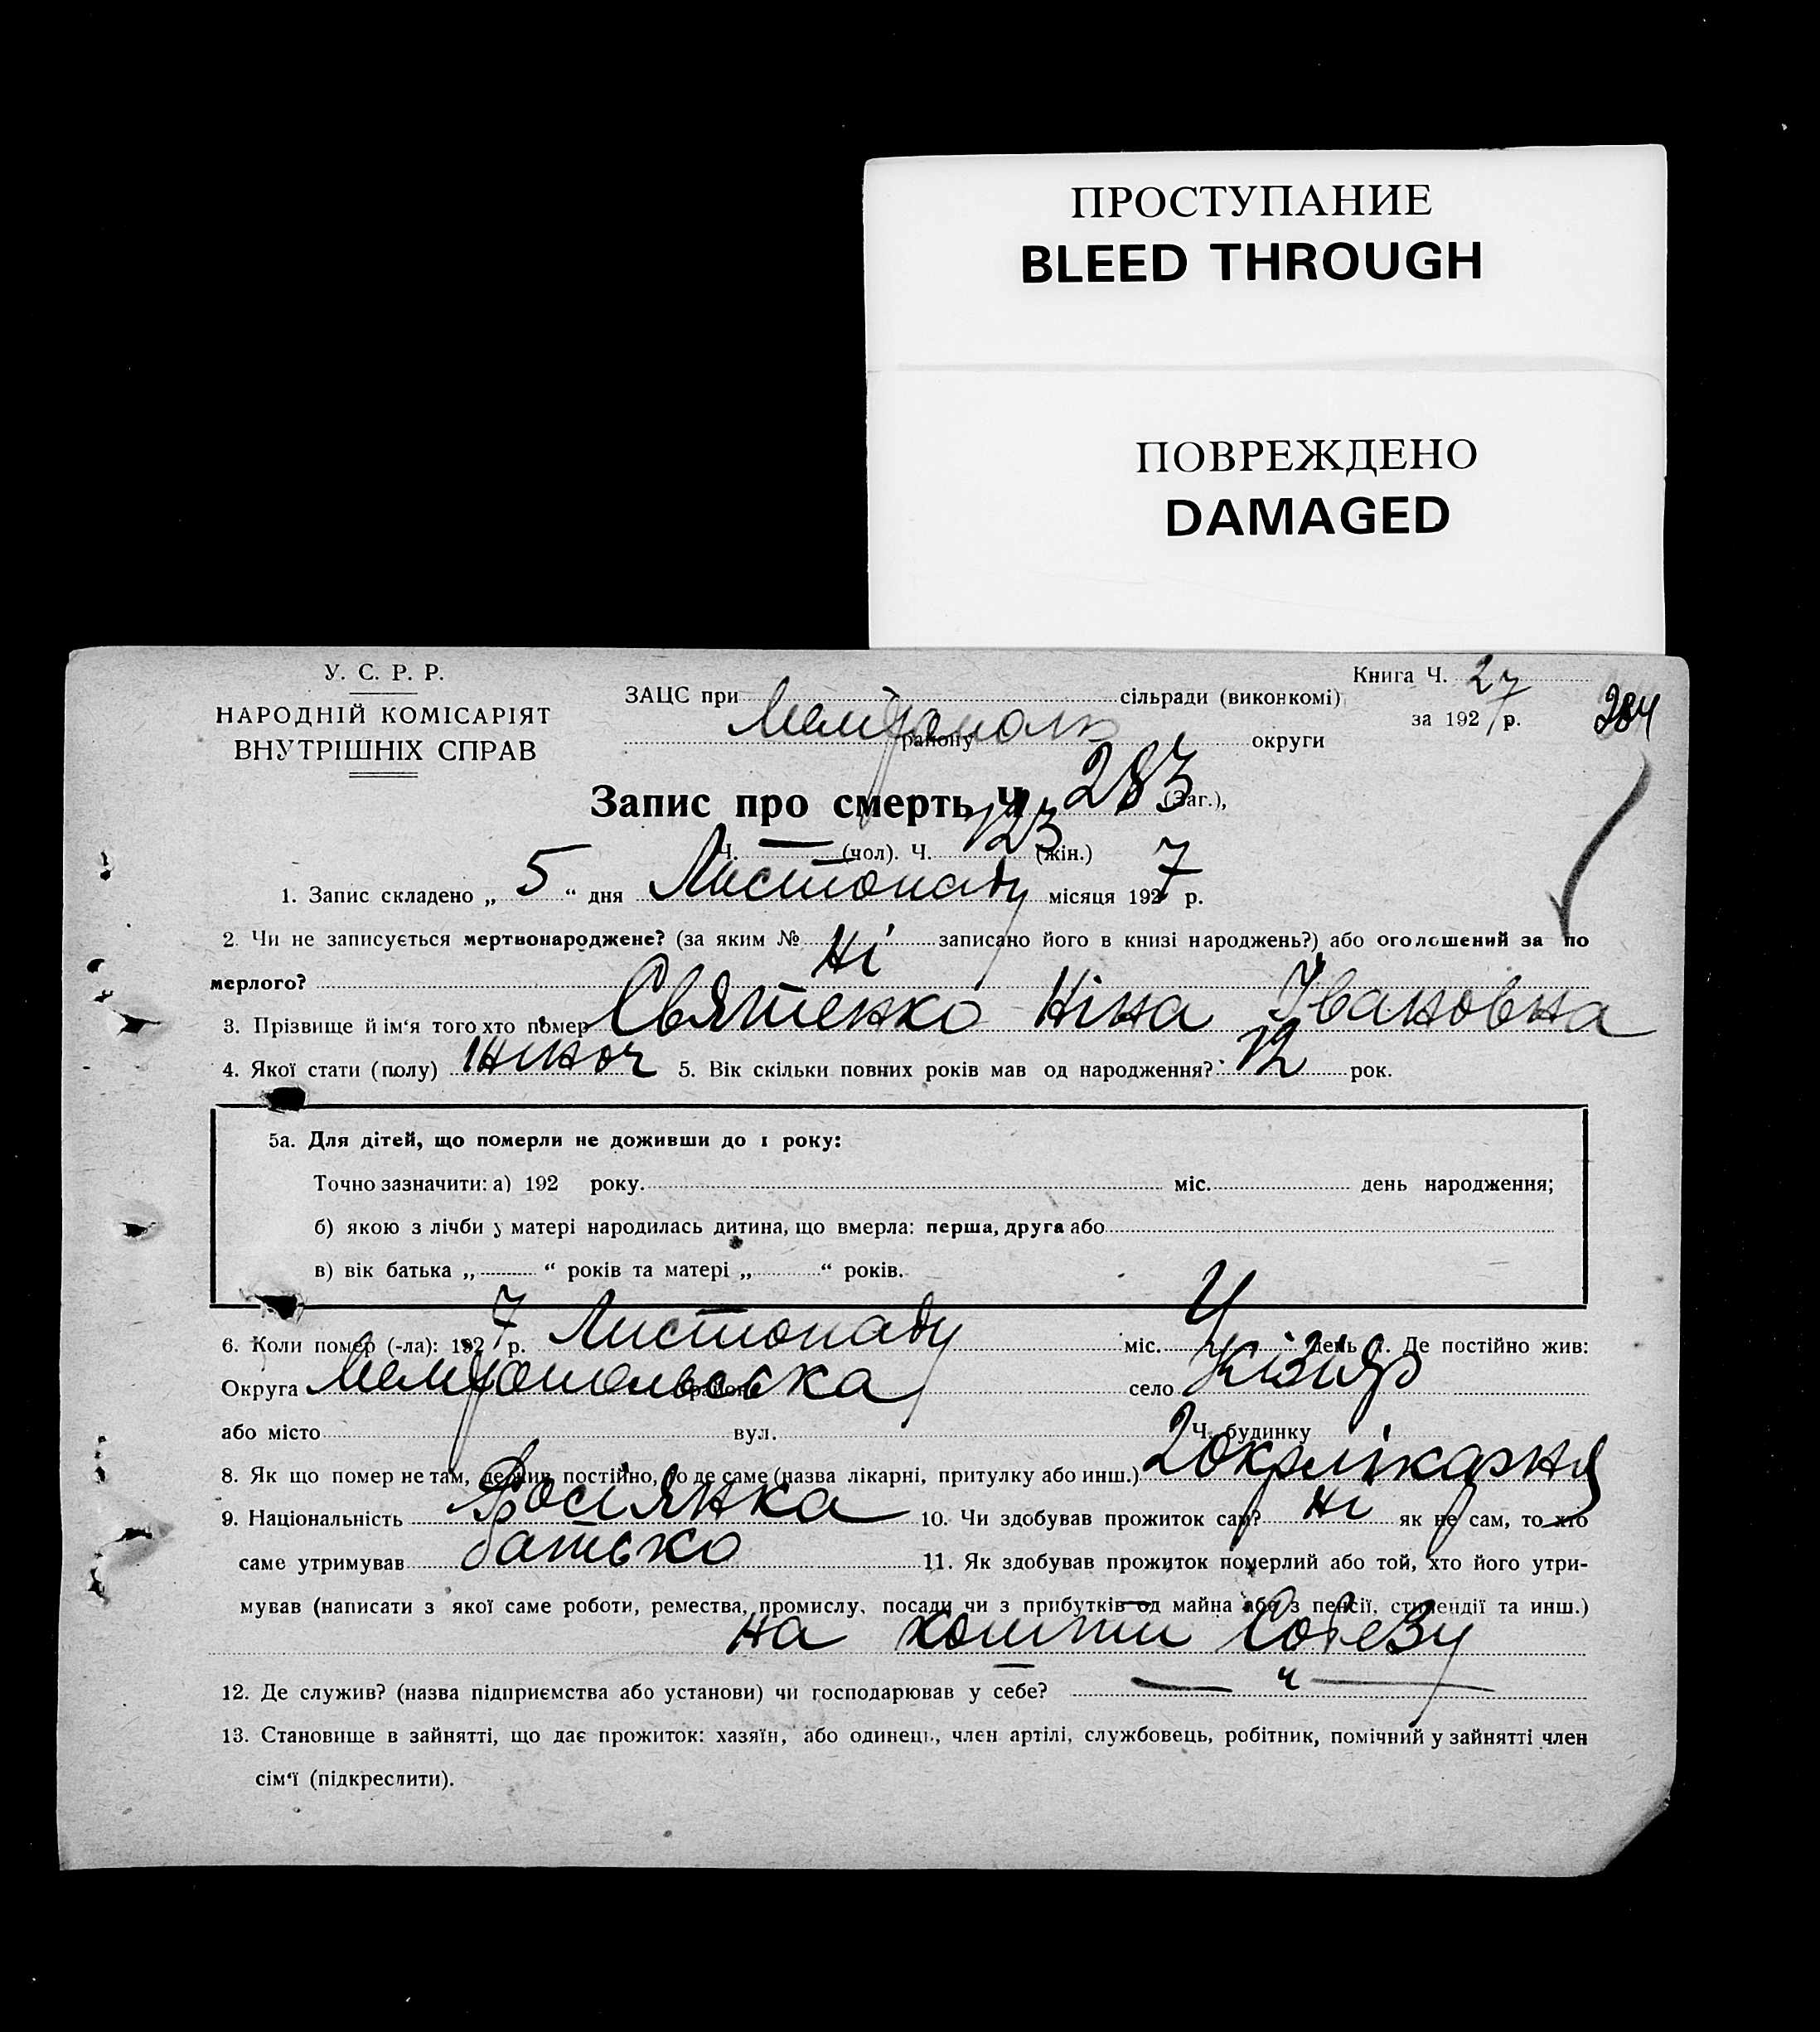 ПРОСТУПАНИЕ
BLEED THROUGH
ПОВРЕЖДЕНО
DAMAGED
У. С. Р. Р.
НАРОДНІЙ КОМІСАРІЯТ
ВНУТРІШНІХ СПРАВ
Книга Ч. 27
за 1927 р.
284
ЗАЦС при сільради (виконкомі)
Мелітополь району округи
Запис про смерть Ч. 283 (Заг.),
Ч. — (чол). Ч. 123 (жін.)
1. Запис складено „ 5 “ дня Листопаду місяця 1927 р.
2. Чи не записується мертвонароджене? (за яким № записано його в книзі народжень?) або оголошений за по
мерлого? Ні
3. Прізвище й ім‘я того хто помер Святенко Ніна Івановна
4. Якої стати (полу) жіноч 5. Вік скільки повних років мав од народження? 12 рок.
5а. Для дітей, що померли не доживши до 1 року:
Точно зазначити: а) 192 року. міс. день народження;
б) якою з лічби у матері народилась дитина, що вмерла: перша, друга або
в) вік батька „ “ років та матері „ “ років.
6. Коли помер (-ла): 1927 р. Листопаду міс. 4 день 7. Де постійно жив:
Округа Мелітопольська район село Кізияр
або місто вул. Ч. будинку
8. Як що помер не там, де жив постійно, то де саме (назва лікарні, притулку або инш.) 2 Окрлікарня
9. Національність Росіянка 10. Чи здобував прожиток сам? Ні як не сам, то хто
саме утримував батько 11. Як здобував прожиток померлий або той, хто його утри-
мував (написати з якої саме роботи, ремества, промислу, посади чи з прибутків од майна або з пенсії, стипендії та инш.)
на кошти
12. Де служив? (назва підприємства або установи) чи господарював у себе? — ч —
13. Становище в зайнятті, що дає прожиток: хазяїн, або одинець, член артілі, службовець, робітник, помічний у зайнятті член
сім‘ї (підкреслити).